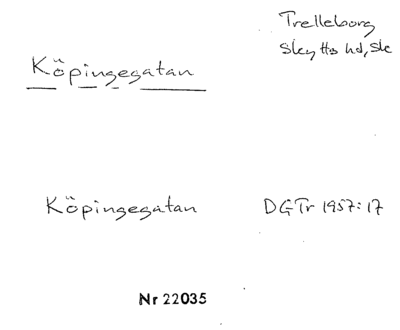 Trelleborg
Skytts hd, Sk
Köpingegatan
Köpingegatan DGTr 1957:17
Nr 22035